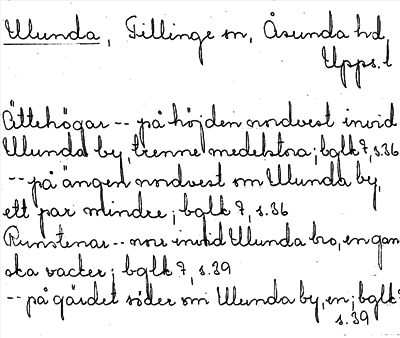 Ulunda, Tillinge sn, Åsunda hd,
Upps. l
Ättehögar -- på höjden nordvest invid
Ulunda by, trenne medelstora; bglk 7, s.36
-- på ängen nordvest om Ulunda by,
ett par mindre; bglk 7, s.36
Runstenar -- norr invid Ulunda bro, en gan-
ska vacker; bglk 7, s.39
-- på gärdet söder om Ulunda by, en; bglk 7
s.39